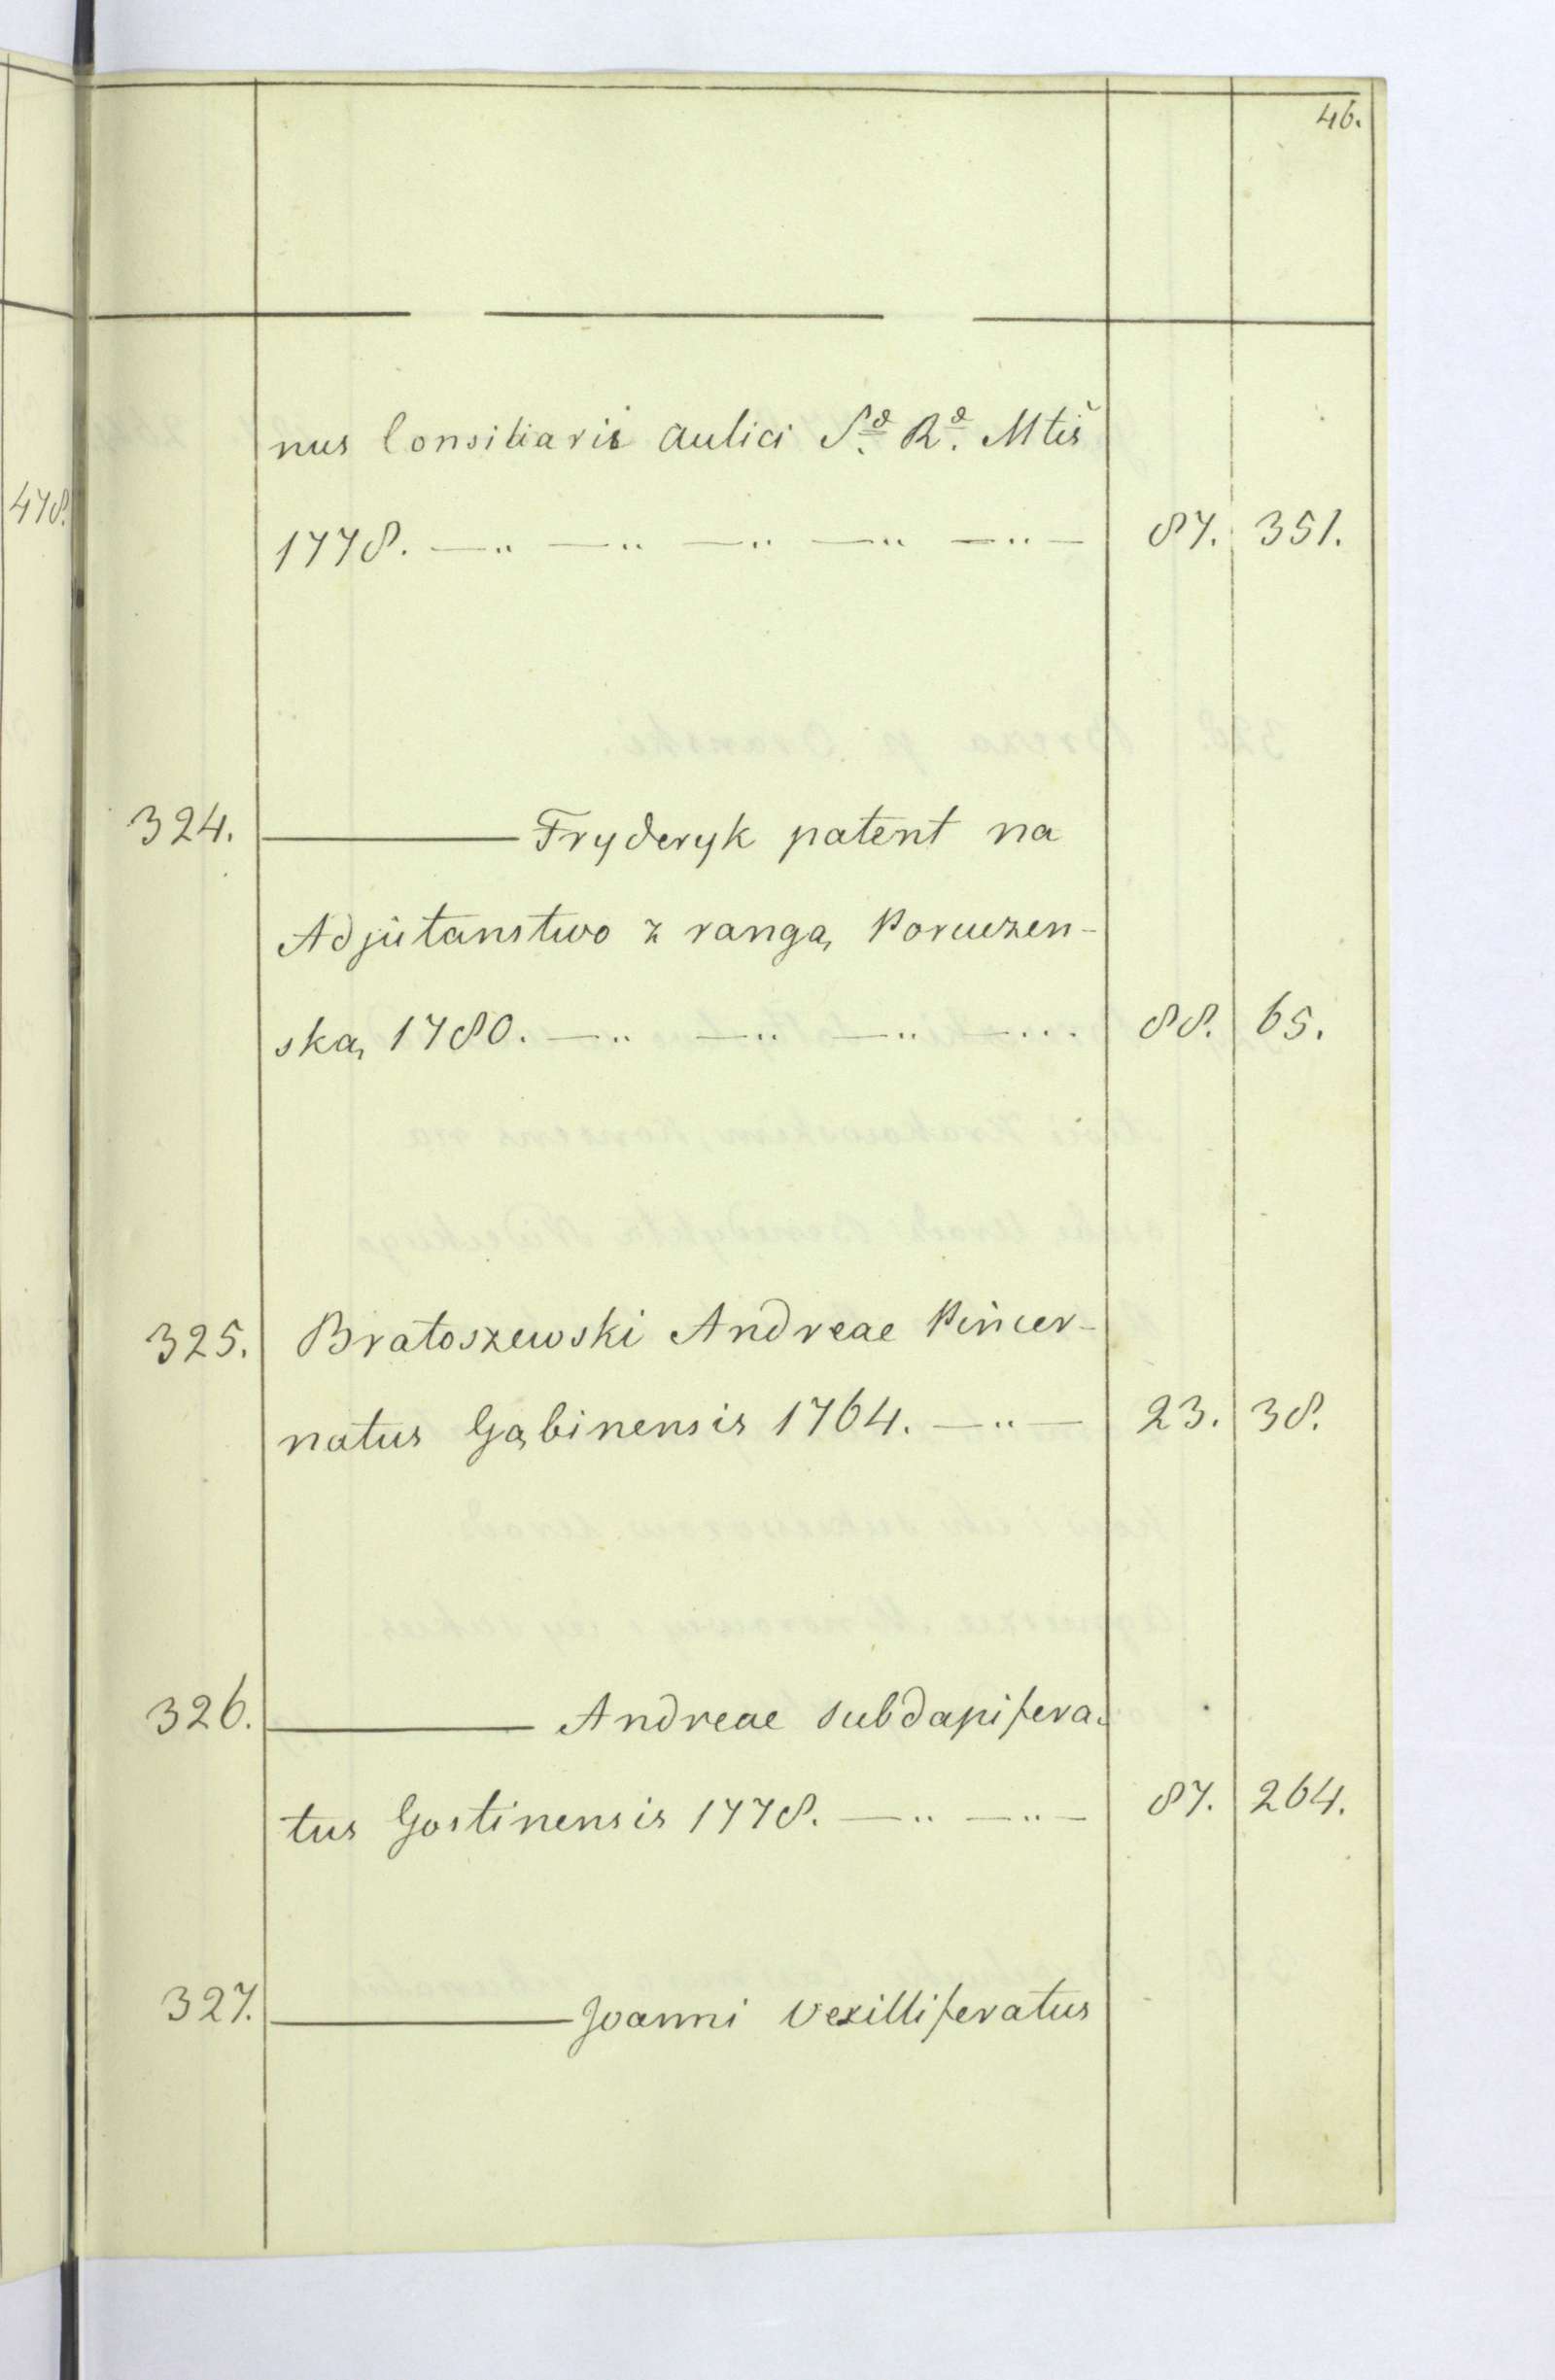 46.
nus Consiliarii Aulici S. R. Mtis
478.
1778. —..—..—..—..—..— 87. 351.
324. ——— Fryderyk patent na
Adjutanstwo z rangą Poruczen-
ską 1780. —..—..—..—... 88. 65.
325. Bratoszewski Andreae Pincer-
natus Gąbinensis 1764. —..— 23. 38.
326. ——— Andreae Subdapifera-
tus Gostinensis 1778. —..—..— 87. 264.
327. ——— Joanni Vexilliferatus